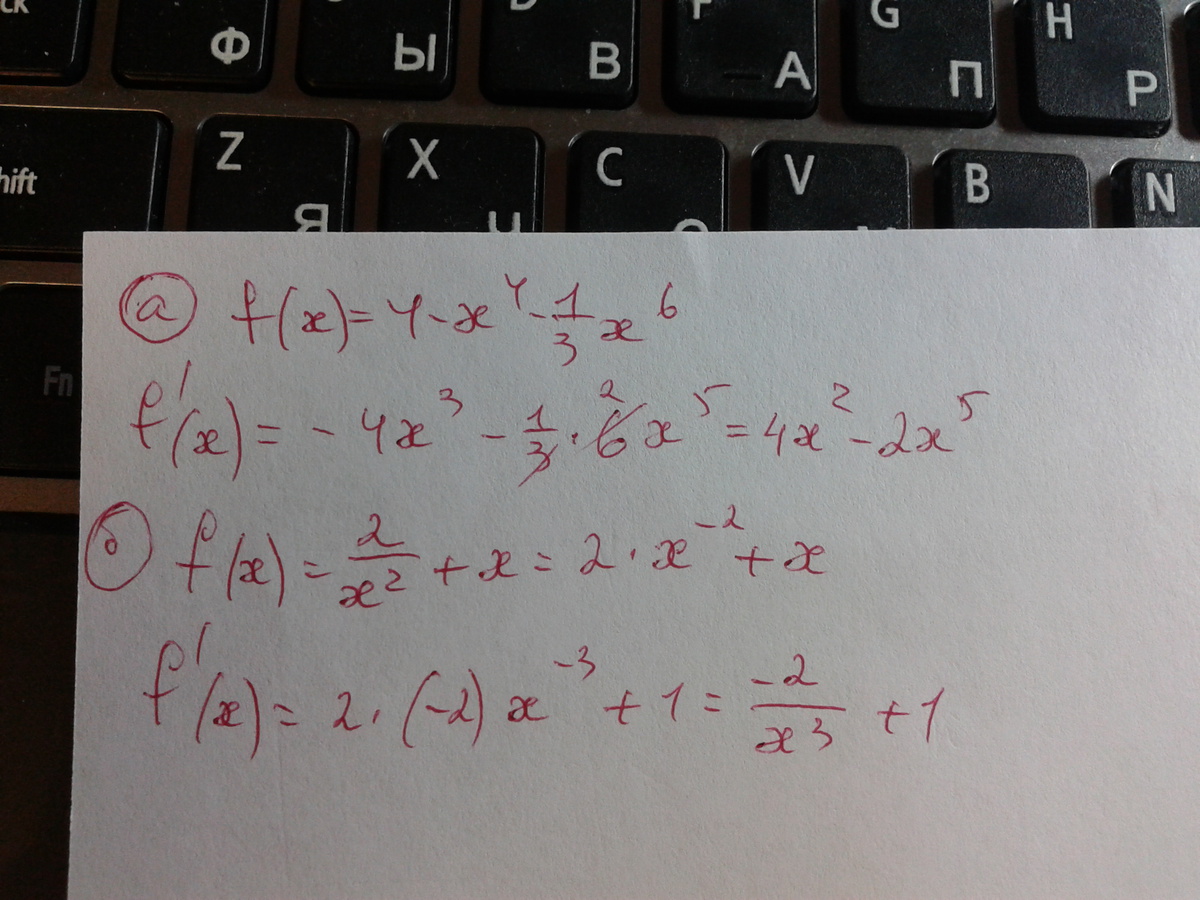 ck Ф Ы D В F А G П H Р
hift Z Я X Ч C V B N
Fn
а f(x)=4-x⁴-1/3x⁶
f'(x)=-4x³-1/3·6 2x⁵=4x²-2x⁵
б f(x)=2/x²+x=2·x⁻²+x
f'(x)=2·(-2)x⁻³+1=-2/x³+1